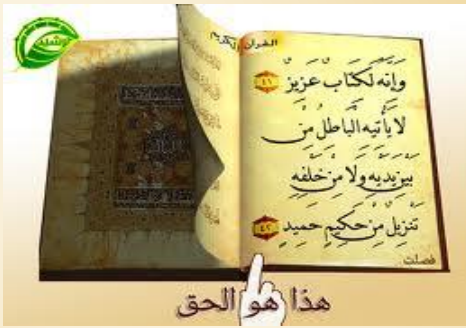 القرآن الكريم
وَإِنَّهُ لَكِتَابٌ عَزِيزٌ ٤١
لا يَأْتِيهِ الْبَاطِلُ مِن
بَيْنِ يَدَيْهِ وَلا مِنْ خَلْفِهِ
تَنزِيلٌ مِّنْ حَكِيمٍ حَمِيدٍ ٤٢
فصلت
هذا هو الحق